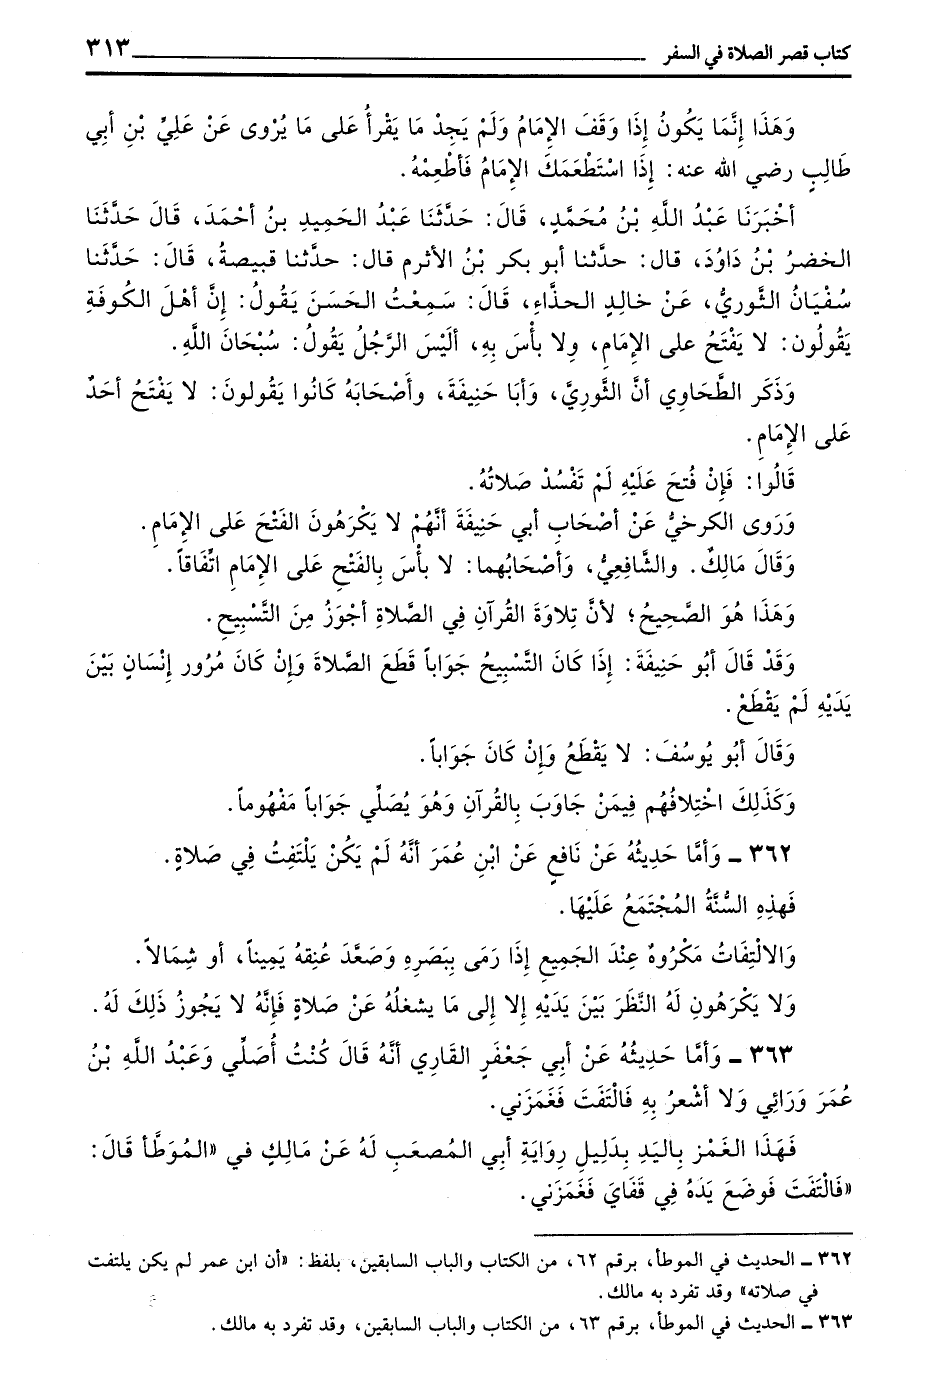 كتاب قصر الصلاة في السفر ٣١٣
وَهَذَا إِنَّمَا يَكُونُ إِذَا وَقَفَ الإِمَامُ وَلَمْ يَجِدْ مَا يَقْرأُ عَلى مَا يُرْوى عَنْ عَلِيِّ بْنِ أبي
طَالِبٍ رضي الله عنه: إِذَا اسْتَطْعَمَكَ الإِمَامُ فَأَطْعِمْهُ.
أَخْبَرَنَا عَبْدُ اللَّهِ بْنُ مُحَمَّدٍ، قَالَ: حَدَّثَنَا عَبْدُ الحَمِيدِ بنُ أحْمَدَ، قَالَ حَدَّثَنَا
الخضرُ بْنُ دَاوُدَ، قال: حدَّثنا أبو بكر بْنُ الأثرم قال: حدَّثنا قبيصةُ، قَالَ: حَدَّثَنا
سُفْيَانُ الثَّوريُّ، عَنْ خالِدٍ الحذَّاءِ، قَالَ: سَمِعْتُ الحَسَنَ يَقُولُ: إِنَّ أهْلَ الكُوفَةِ
يَقُولُون: لا يَفْتَحُ على الإِمَامِ، وِلا بأْسَ بِهِ، ألَيْسَ الرَّجُلُ يَقُولُ: سُبْحَانَ اللَّهِ.
وَذَكَر الطَّحَاوِي أنَّ الثَّوريَّ، وَأبَا حَنِيفَةَ، وأَصْحَابَهُ كَانُوا يَقُولونَ: لا يَفْتَحُ أحَدٌ
عَلى الإِمَامِ.
قَالُوا: فَإِنْ فُتحَ عَلَيْهِ لَمْ تَفْسُدْ صَلاتُهُ.
وَرَوى الكرخيُّ عَنْ أصْحَابِ أبي حَنِيفَةَ أنَّهُمْ لا يَكْرَهُونَ الفَتْحَ عَلى الإِمَامِ.
وَقَالَ مَالِكٌ. والشَّافِعِيُّ، وَأصْحَابُهما: لا بأْسَ بِالفَتْحِ عَلى الإِمَامِ اتِّفَاقاً.
وَهَذَا هُوَ الصَّحِيحُ؛ لأنَّ تِلاوَةَ القُرآنِ فِي الصَّلاةِ أجْوَزُ مِنَ التَّسْبِيحِ.
وَقَدْ قَالَ أبُو حَنِيفَةَ: إِذَا كَانَ التَّسْبِيحُ جَوَاباً قَطَعَ الصَّلاةَ وَإِنْ كَانَ مُرُور إِنْسَانٍ بَيْنَ
يَدَيْهِ لَمْ يَقْطَعْ.
وَقَالَ أبُو يُوسُفَ: لا يَقْطَعُ وَإِنْ كَانَ جَوَاباً.
وَكَذَلِكَ اخْتِلافُهُم فِيمَنْ جَاوَبَ بِالقُرآنِ وَهُوَ يُصَلِّي جَوَاباً مَفْهُوماً.
٣٦٢ ـ وَأمَّا حَدِيثُهُ عَنْ نَافِعٍ عَنْ ابْنِ عُمَرَ أنَّهُ لَمْ يَكُنْ يَلْتَفِتُ فِي صَلاةٍ.
فَهذِهِ السُّنَّةُ المُجْتَمَعُ عَلَيْهَا.
وَالالْتِفَاتُ مَكْرُوهٌ عِنْدَ الجَمِيعِ إِذَا رَمَى بِبَصَرِهِ وَصَعَّدَ عُنِقهُ يَمِيناً، أو شِمَالاً.
وَلا يَكْرَهُونِ لَهُ النَّظَرَ بَيْنَ يَدَيْهِ إِلا إِلى مَا يشغلُهُ عَنْ صَلاةٍ فَإِنَّهُ لا يَجُوزُ ذَلِكَ لَهُ.
٣٦٣ ـ وَأمَّا حَدِيثُهُ عَنْ أبي جَعْفَرٍ القَارِي أنَّهُ قَالَ كُنْتُ أُصَلِّي وَعَبْدُ اللَّهِ بْنُ
عُمَرَ وَرَائِي وَلا أشْعرُ بِهِ فَالْتَفَتَ فَغَمَزَني.
فَهَذَا الغَمْزِ بِاليَدِ بِدَلِيلِ رِوَايَةِ أبي المُصعَبِ لَهُ عَنْ مَالِكٍ في «المُوَطَّأ قَالَ:
«فَالْتَفَتَ فَوضَعَ يَدَهُ فِي قَفَايَ فَغَمَزَني.
٣٦٢ ـ الحديث في الموطأ، برقم ٦٢، من الكتاب والباب السابقين، بلفظ: «أن ابن عمر لم يكن يلتفت
في صلاته» وقد تفرد به مالك.
٣٦٣ ـ الحديث في الموطأ، برقم ٦٣، من الكتاب والباب السابقين، وقد تفرد به مالك.